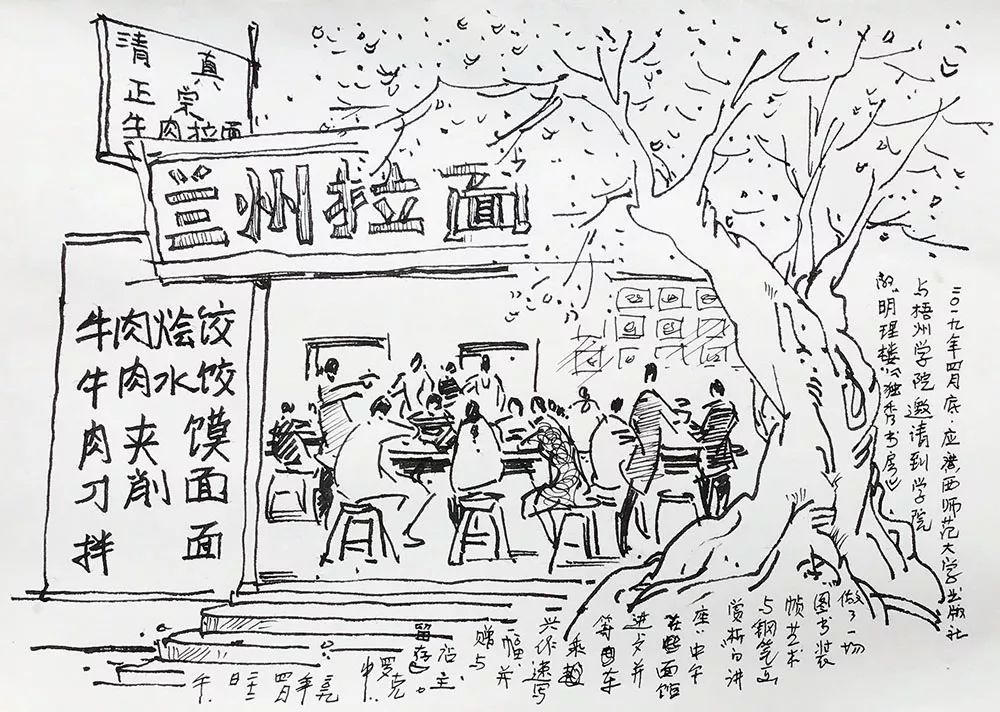 清真
正宗
牛肉拉面
兰州拉面
牛肉烩饺
牛肉水饺
肉夹馍
刀削面
拌面
二〇一九年四月底·应广西师范大学出版社
与梧州学院邀请到学院
的"明理楼"《独秀书房》
做了一场
图书装
帧艺术
与钢笔
赏析的讲
座，中午
在此面馆
进夕并
等车
乘
兴作速写
幅，并
赠与
店主
留存。
罗克
中